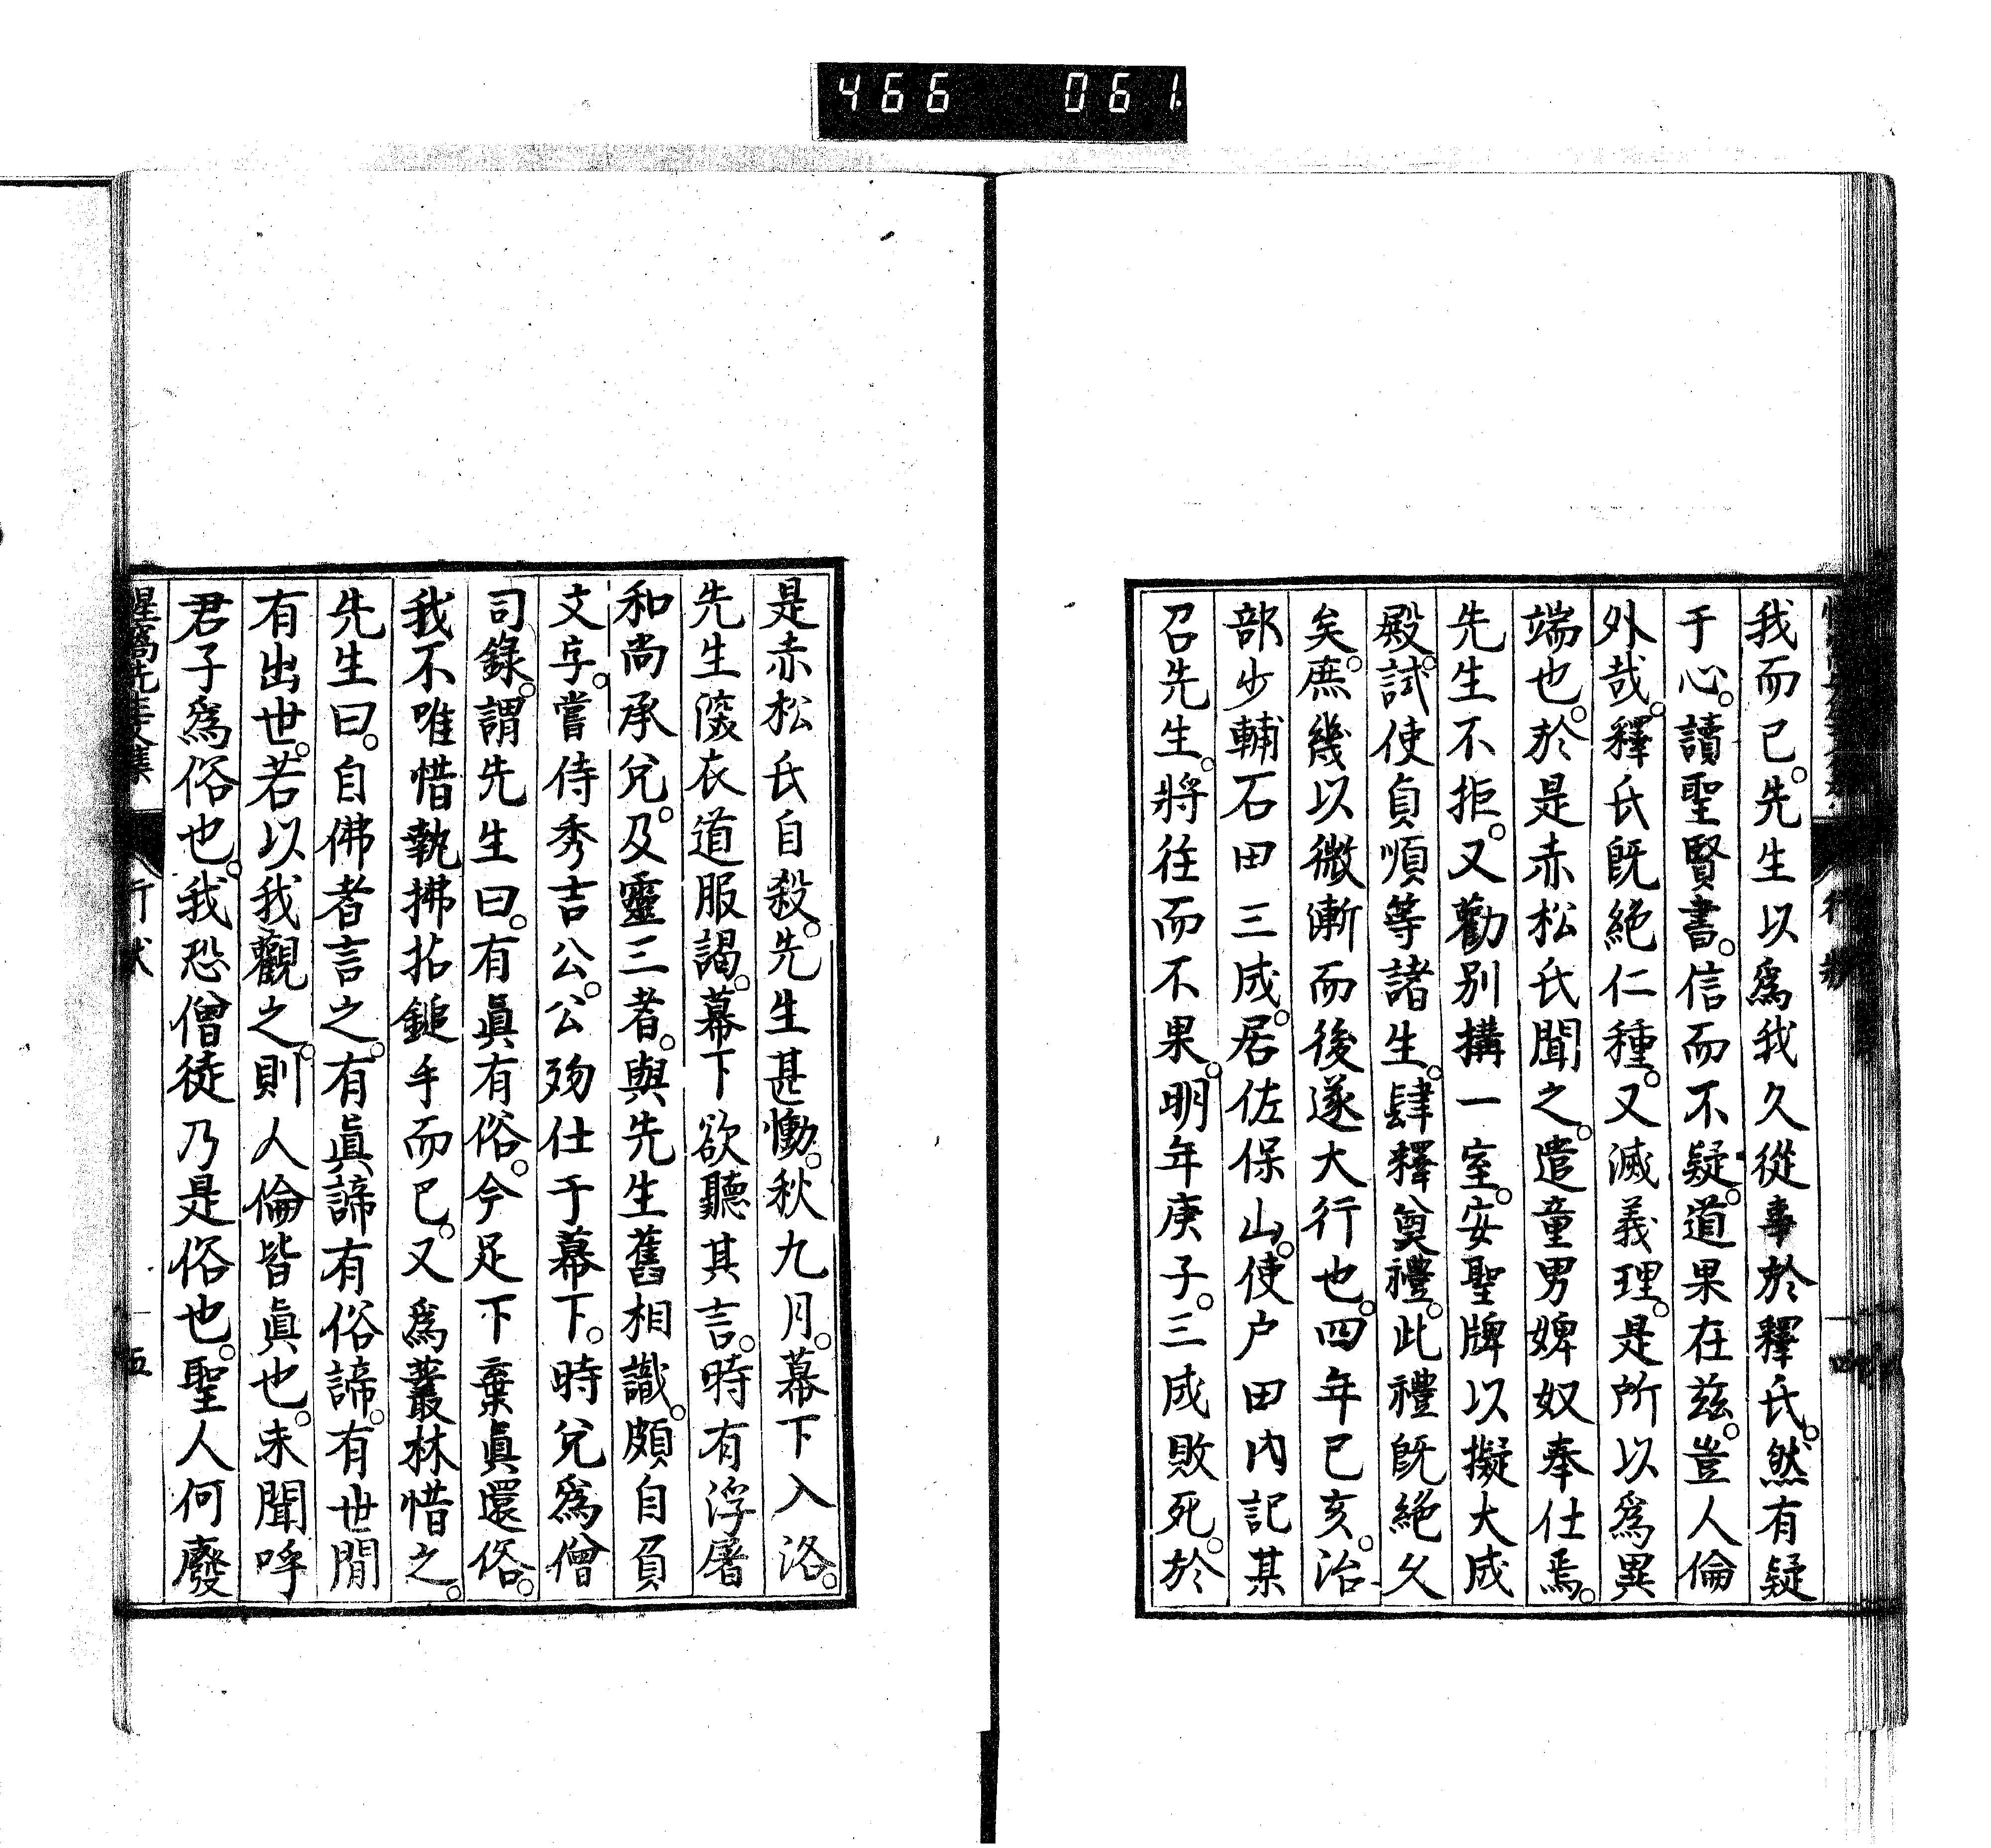 466 061
我而已。先生以爲我久從事於釋氏。然有疑
于心。讀聖賢書。信而不疑。道果在兹。豈人倫
外哉。釋氏既絶仁種。又滅義理。是所以爲異
端也。於是赤松氏聞之。遣童男婢奴奉仕焉。
先生不拒。又勸别搆一室。安聖牌以擬大成
殿。試使貞順等諸生。肆釋奠禮。此禮既絶久
矣。庶幾以微漸而後遂大行也。四年已亥。治
部少輔石田三成。居佐保山。使户田内記某
召先生。將徃而不果。明年庚子。三成敗死。於
行狀
四
是赤松氏自殺。先生甚慟。秋九月。幕下入洛。
先生深衣道服謁。幕下欲聽其言。時有浮屠
和尚承兊。及靈三者。與先生舊相識。頗自負
文字。嘗侍秀吉公。公殁仕于幕下。時兊爲僧
司錄。謂先生曰。有眞有俗。今足下棄眞還俗。
我不唯惜執拂拈鎚手而已。又爲叢林惜之。
先生曰。自佛者言之。有眞諦有俗諦。有世間
有出世。若以我觀之。則人倫皆眞也。未聞呼
君子爲俗也。我恐僧徒乃是俗也。聖人何廢
惺窩先生文集
行狀
五